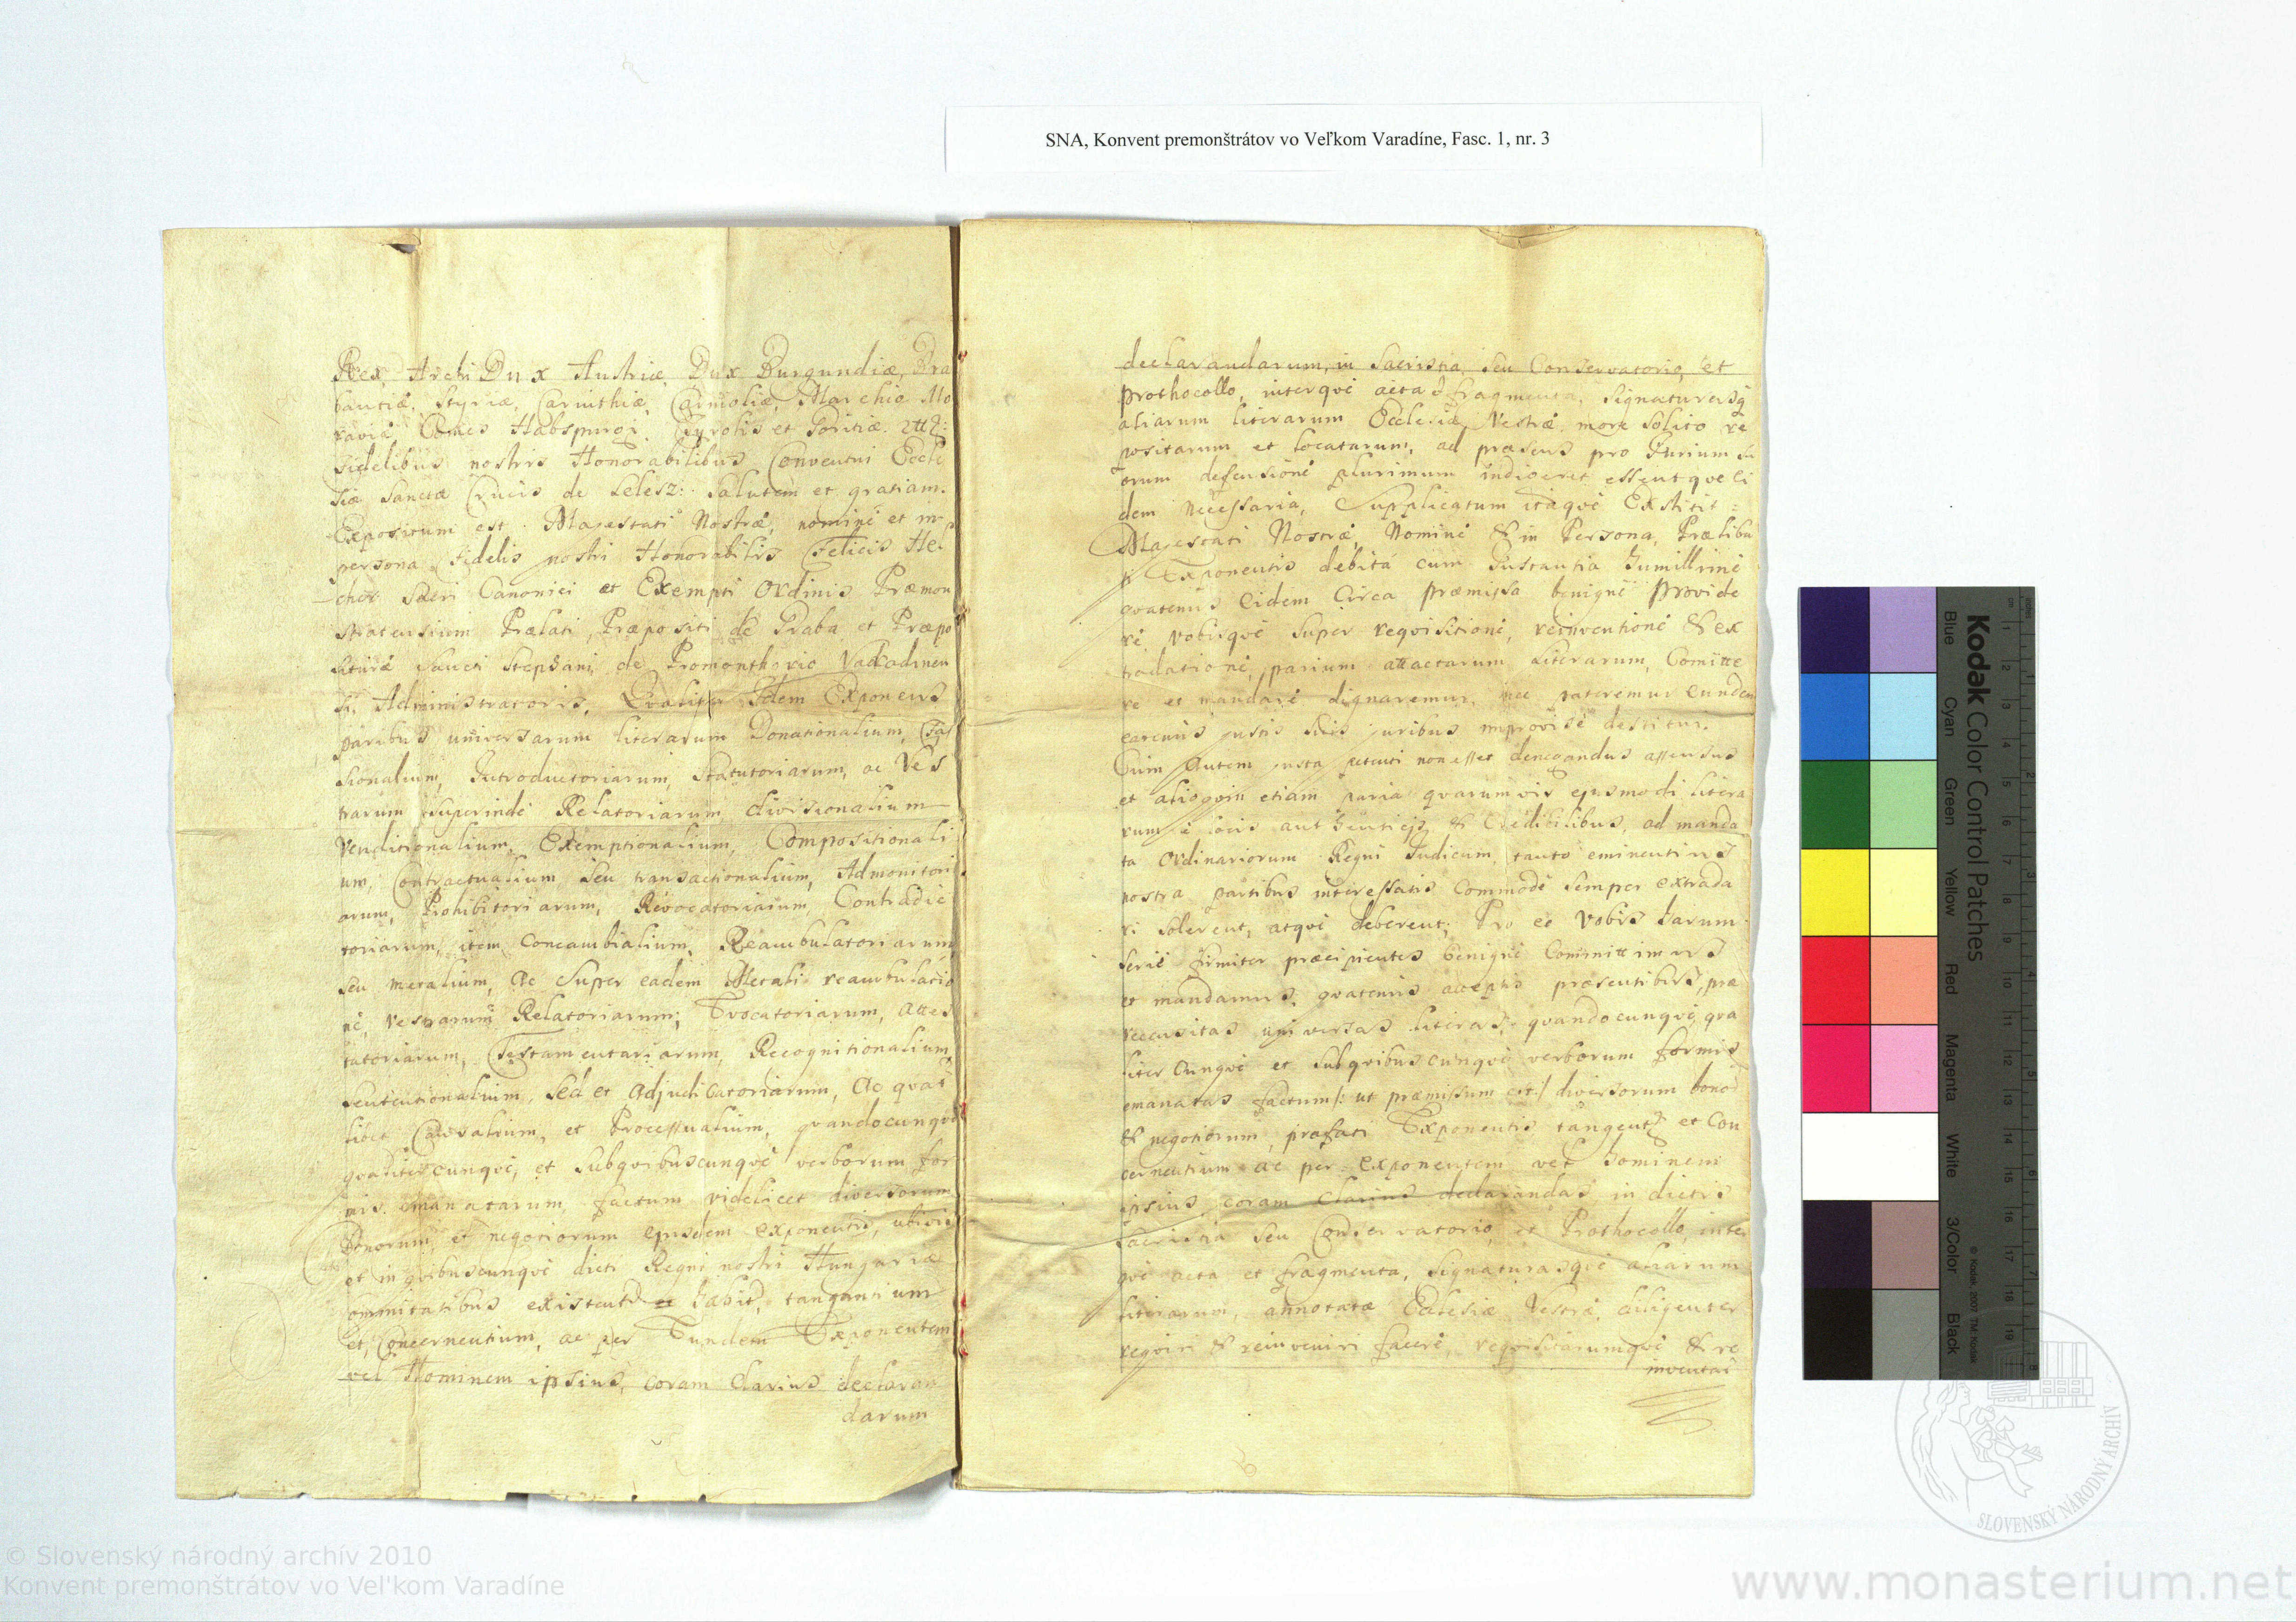 SNA, Konvent premonštrátov vo Veľkom Varadíne, Fasc. 1, nr. 3
Rex, Archi Dux Austriæ, Dux Burgundiæ, Bra
bantiæ, Styriæ, Carinthiæ, Carnioliæ, Marchio Mo
raviæ Comes Habspurgi, Tyrolis et Goritiæ.
fidelibus nostris Honorabilibus Conventui Eccle
siæ Sanctæ Crucis de Lelesz: Salutem et gratiam.
Expositum est Majestati Nostræ, nomine et in
persona fidelis nostri Honorabilis Felicis Hel
cher Sacri Canonici et Exempti Ordinis Præmon
stratensium Prælati, Præpositi de Praba, et Præpo
situræ Sancti Stephani de Promonthorio Varadinen
si, Administratoris, Qualiter Idem Exponens
paribus universarum literarum Donationalium, Fas
sionalium, Introductoriarum, Statutoriarum, ac Ves
trarum superinde Relatoriarum, divisionalium
Venditionalium, Exemptionalium, Compositionali
um, Contractualium seu transactionalium, Admonitori
arum, Prohibitoriarum, Revocatoriarum, Contradic
toriarum, item Concambialium, Reambulatoriarum,
seu metalium, ac super eadem Metali reambulatio
ne, vestrarum Relatoriarum, Evocatoriarum, attes
tatoriarum, Testamentariarum, Recognitionalium,
sententionalium, sed et adjudicatoriarum, ac qvar
libet Causalium, et Processualium, qvandocunqve
qvalitercunqve, et subqvibuscunqve verborum for
mis emanatarum, factum videlicet diversorum
Bonorum, et negotiorum ejusdem exponentis, ubivis
et in qvibuscunqve dicti Regni nostri Hungariæ
Comitatibus existent et habit, tangentium
et, Concernentium, ac per Eundem Exponentem
vel Hominem ipsius, coram clarius declaran
darum
declarandarum, in Sacristia, seu Conservatorio, et
Prothocollo, interqve acta & fragmenta, signaturasq
aliarum literarum Ecclesiæ Vestræ more solito re
positarum et locatarum, ad præsens pro Jurium su
orum defensione plurimum indigeret essentqve ei
dem necessaria, Supplicatum itaqve Exstitit
Majestati Nostræ, Nomine & in Persona, Præliba
ti Exponentis debitá cum Instantia humillime
qvatenus Eidem Circa præmissa benigne Provide
re, vobisqve super reqvisitione, reinventione & ex
tradatione, parium attactarum Literarum, Comitte
re et mandare dignaremur, nec pateremur eundem
eatenus justis suis juribus improvise destitui.
Cum Autem justa petenti non esset denegandus assensus
et alioqvin etiam paria qvarumvis ejusmodi litera
rum è locis authenticis & Credibilibus, ad manda
ta Ordinariorum Regni Judicum, tanto eminentius
nostra partibus interessatis Commode semper extrada
ri solerent, atqve deberent; Pro eo Vobis harum
serie firmiter præcipientes benigne Committimus
et mandamus, qvatenus acceptis præsentibus, præ
recensitas universas literas, qvandocunqve, qva
liter cunqve et subqvibuscunqve verborum formis
emanatas factum /: ut præmissum est :/ diversorum bonor
& negotiorum, præfati Exponentis tangent et Con
cernentium ac per exponentem vel hominem
ipsius, coram Clarius declarandas in dictis
Sacristia seu Conservatorio, et Prothocollo, inter
qve acta et fragmenta, signaturasqve aliarum
literarum, annotatæ Ecclesiæ Vestræ, diligenter
reqviri & reinveniri facere, reqvisitarumqve & re
inventar
Kodak Color Control Patches
Blue
Cyan
Green
Yellow
Red
Magenta
White
3/Color
Black
© Kodak, 2007 TM: Kodak
SLOVENSKÝ NÁRODNÝ ARCHÍV
© Slovenský národný archív 2010
Konvent premonštrátov vo Vel'kom Varadíne
www.monasterium.net